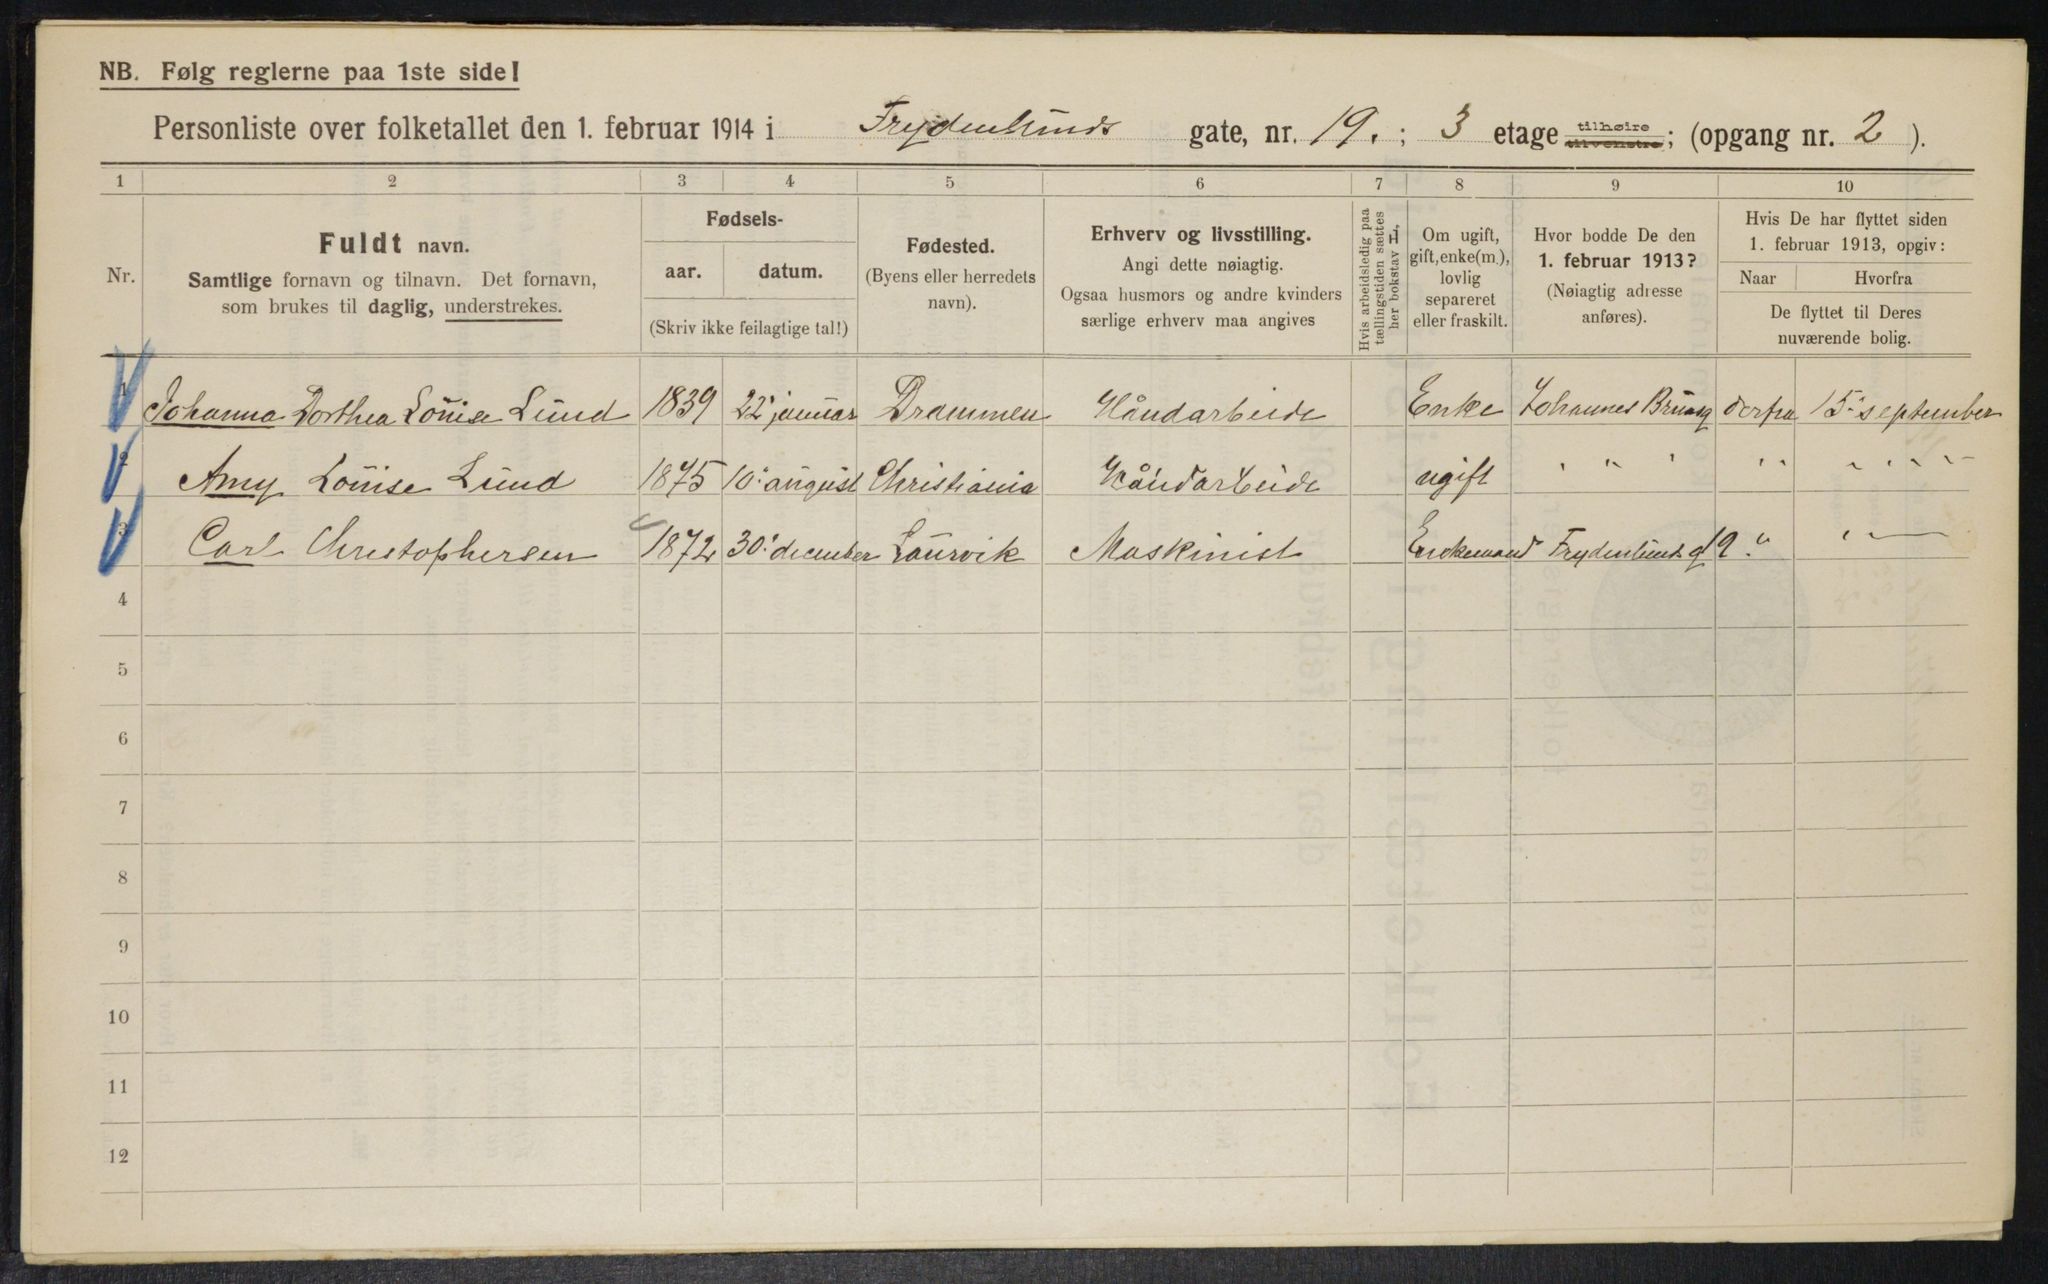 NB. Følg reglerne paa 1ste side!
Personliste over folketallet den 1. februar 1914 i Frydenlunds gate, nr. 19. ; 3 etage tilhøire tilvenstre; (opgang nr. 2 ).
1 2 3 4 5 6 7 8 9 10
Nr.
Fuldt navn.
Samtlige fornavn og tilnavn. Det fornavn,
som brukes til daglig, understrekes.
Fødsels-
aar. datum.
(Skriv ikke feilagtige tal!)
Fødested.
(Byens eller herredets
navn).
Erhverv og livsstilling.
Angi dette nøiagtig.
Ogsaa husmors og andre kvinders
særlige erhverv maa angives
Hvis arbeidsledig paa
tællingstiden sættes
her bokstav L.
Om ugift,
gift, enke(m.),
lovlig
separeret
eller fraskilt.
Hvor bodde De den
1. februar 1913?
(Nøiagtig adresse
anføres).
Hvis De har flyttet siden
1. februar 1913, opgiv:
Naar Hvorfra
De flyttet til Deres
nuværende bolig.
1 Johanna Dorthea Louise Lund 1839 22' januar Drammen Håndarbeide Enke Johannes Brungt derfra 15' september
2 Amy Louise Lund 1875 10' august Christiania Håndarbeide ugift " " " " " " " " "
3 Carl Christophersen 1872 30' december Laurvik Maskinist Enkemand Frydenlunds g 19 " " "
4
5
6
7
8
9
10
11
12